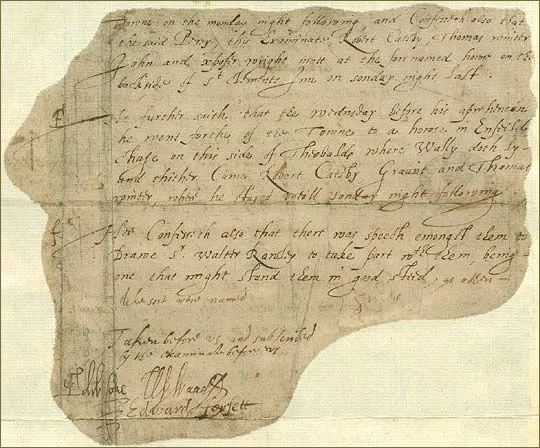 Towne on the monday night following, and Confesseth also that
the said Percy, this Examinate, Robert Catesby, Thomas winter
John and xpofer wright mett at the fornamed howse on the
backside of St Clements Inne on sonday night last.
He further saith that the wednesday before his apprehencon
he went forthe of the Towne to a howse in Enfeild
chase on this side of Theobalds where Wally doth ly
and thither Came Robert Catsby Graunt and Thomas
winter, where he stayed untill sonday night following
Hee Confesseth also that there was speech emongst them to
Drawe Sr Walter Rawley to take part wth them, being
one that might stand them in good steed, as others
like sort were named
Taken before us and subscribed
by the examinate before us
Waad
Edward Forsett